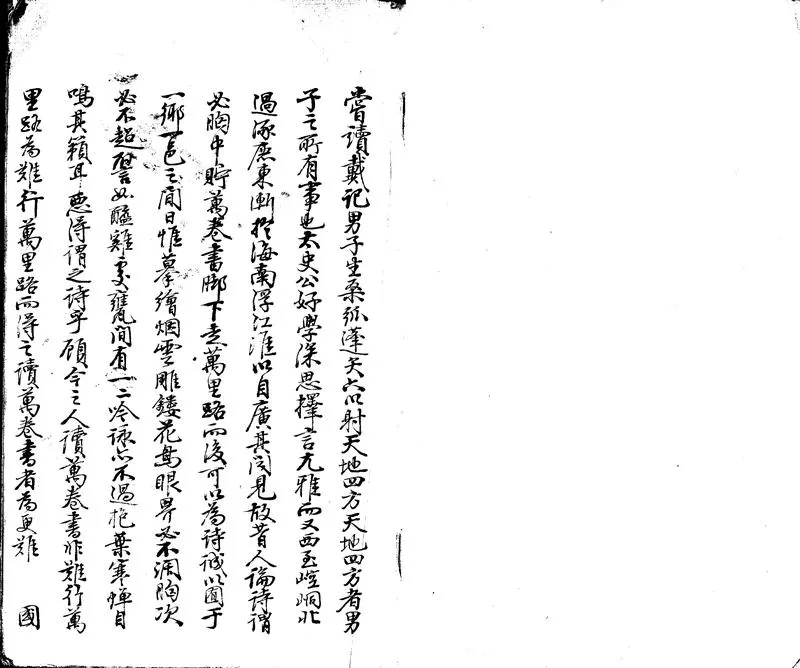 嘗讀戴記男子生桑弧蓬矢六以射天地四方天地四方者男
子之所有事也太史公好學深思擇言尤雅而又西至崆峒北
過涿鹿東漸於海南浮江淮以自廣其聞見故昔人論詩謂
必胸中貯萬卷書脚下走萬里路而後可以為詩誠以囿于
一鄉一邑之間日惟摹繪烟雲雕鏤花鳥眼界必不濶胸次
必不超譬如醯雞處甕間有一二吟詠亦不過抱葉寒蟬自
鳴其籟耳惡得謂之詩乎顧今之人讀萬卷書非難行萬
里路為難行萬里路而得之讀萬卷書者為更難 國